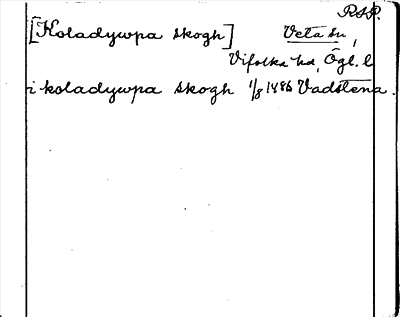 RSP.
[Koladywpa skogh] Veta sn,
Vifolka hd, Ögl. l
i koladywpa skogh 1/8 1486 Vadstena.